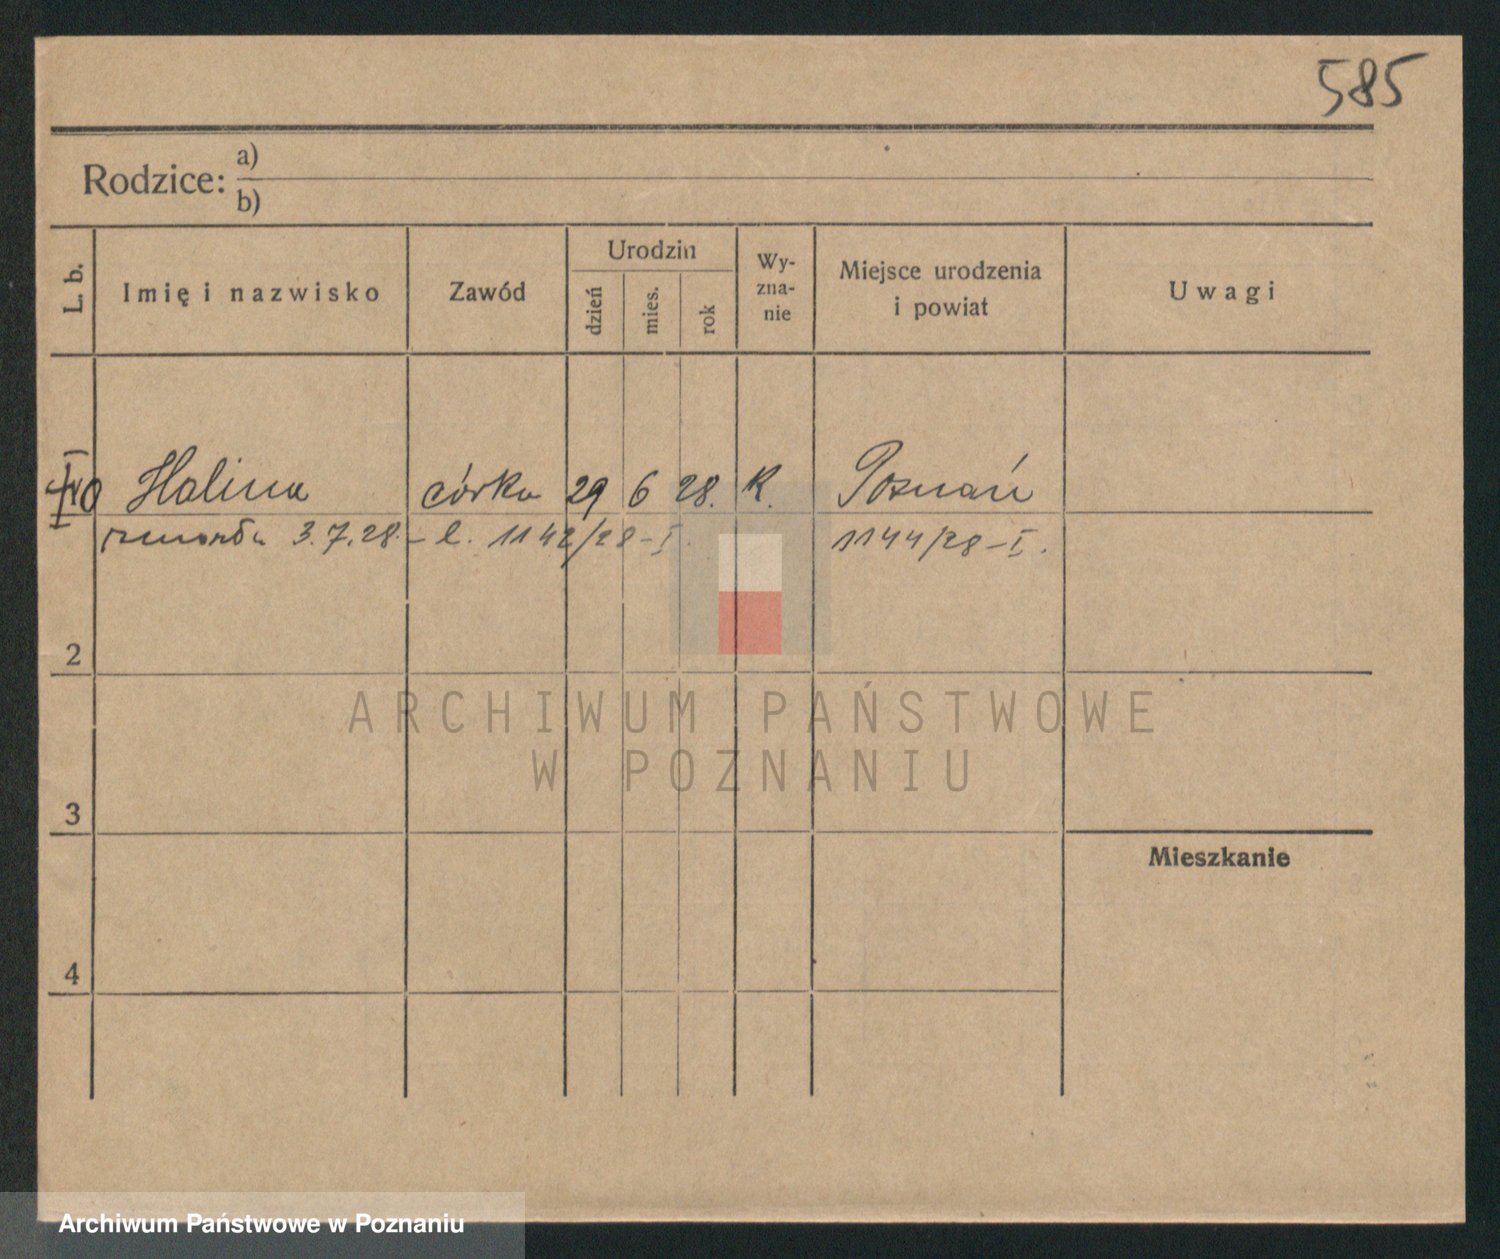 585
Rodzice: a)
b)
L. b.
Imię i nazwisko
Zawód
Urodzin
dzień
mies.
rok
Wy-
zna-
nie
Miejsce urodzenia
i powiat
Uwagi
Halina córka 29 6 28. K. Poznań
zmarła 3.7.28 - l. 1142/28-I. 1144/28-I.
2
3
4
Mieszkanie
ARCHIWUM PAŃSTWOWE
W POZNANIU
Archiwum Państwowe w Poznaniu